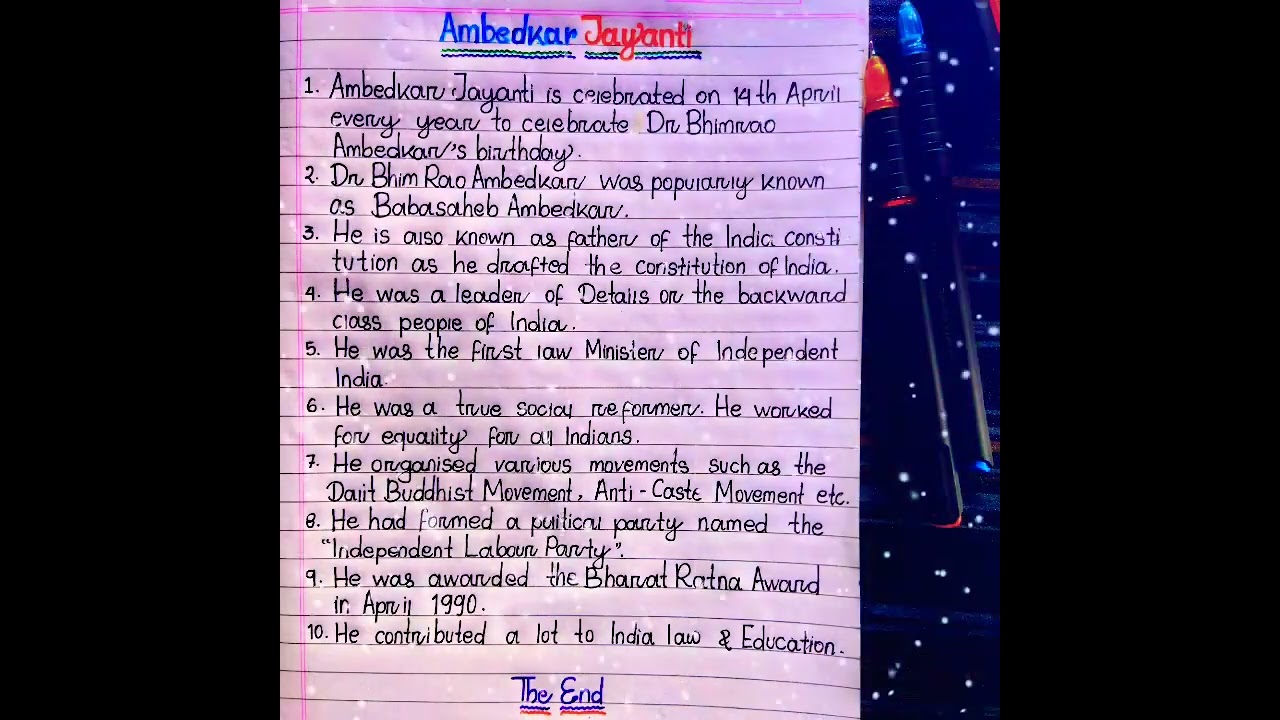 Ambedkar Jayanti
1. Ambedkar Jayanti is celebrated on 14th April
every year to celebrate Dr Bhimrao
Ambedkar's birthday.
2. Dr Bhim Rao Ambedkar was popularly known
as Babasaheb Ambedkar.
3. He is also known as father of the India consti
tution as he drafted the constitution of India.
4. He was a leader of Details or the backward
class people of India.
5. He was the first law Minister of Independent
India.
6. He was a true social reformer. He worked
for equality for all Indians.
7. He organised various movements such as the
Dalit Buddhist Movement, Anti - Caste Movement etc.
8. He had formed a political party named the
"Independent Labour Party".
9. He was awarded the Bharat Ratna Award
in April 1990.
10. He contributed a lot to India law & Education.
The End